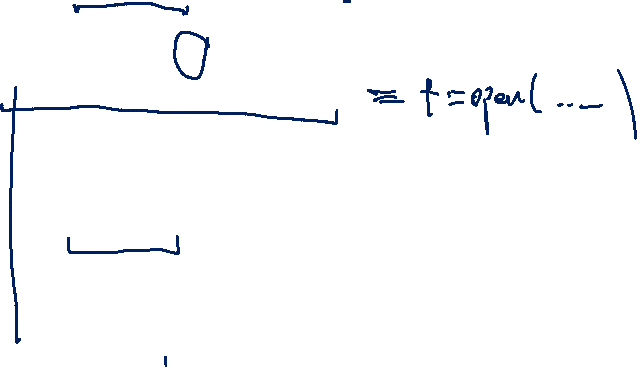 0
= f = open( ....)